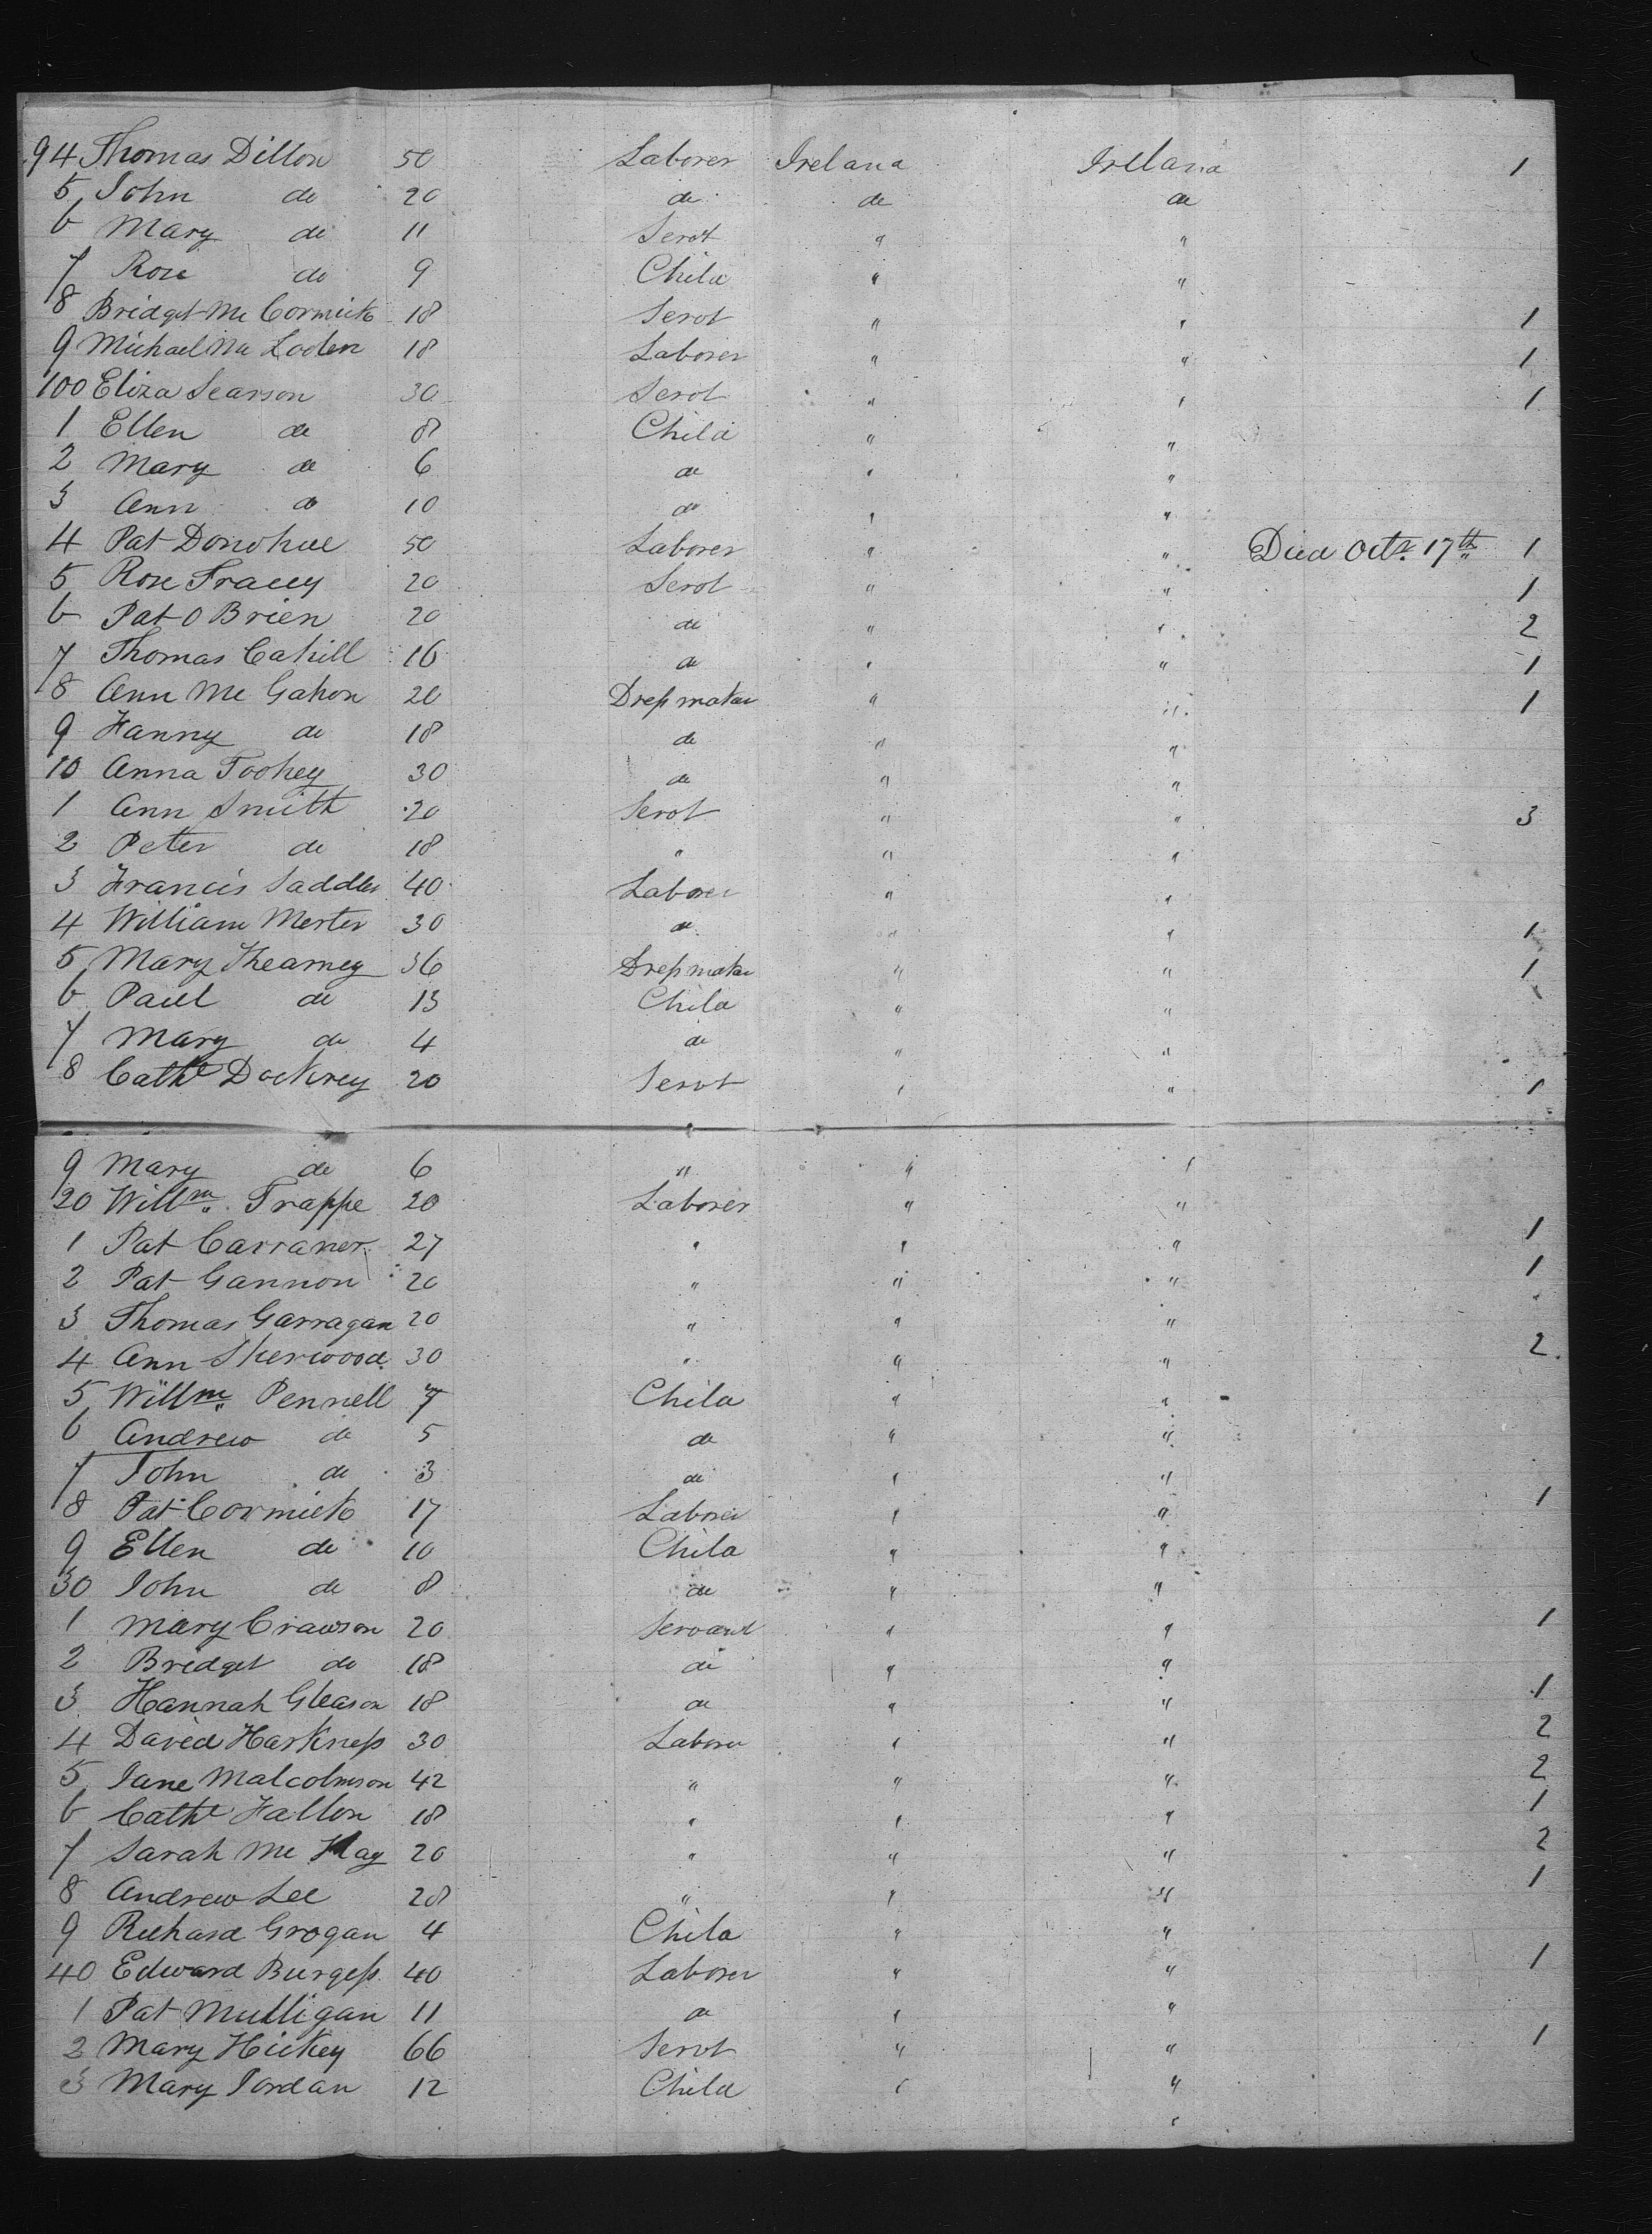 94 Thomas Dillon 50 Laborer Ireland Ireland 1
5 John do 20 do do do
6 Mary do 11 Servt " "
7 Rose do 9 Child " "
8 Bridget Mc Cormick 18 Servt " " 1
9 Michael Mc Loden 18 Laborer " " 1
100 Eliza Searson 30 Servt " " 1
1 Ellen do 8 Child " "
2 Mary do 6 do " "
3 Ann do 10 do " "
4 Pat Donohue 50 Laborer " " Died Octr. 17th 1
5 Rose Tracey 20 Servt " " 1
6 Pat O Brien 20 do " " 2
7 Thomas Cahill 16 do " " 1
8 Ann Mc Gahon 20 Dressmaker " " 1
9 Fanny do 18 do " "
10 Anna Toohey 30 do " "
1 Ann Smith 20 Servt " " 3
2 Peter do 18 " " "
3 Francis Saddler 40 Laborer " "
4 William Merter 30 do " " 1
5 Mary Kearney 36 Dressmaker " " 1
6 Paul do 13 Child " "
7 Mary do 4 do " "
8 Cathe Dockrey 20 Servt " " 1
9 Mary do 6 " " "
20 Willm Trappe 20 Laborer " "
1 Pat Carraner 27 " " " 1
2 Pat Gannon 20 " " " 1
3 Thomas Garragan 20 " " "
4 Ann Sherwood 30 " " " 2
5 Willm Pennell 7 Child " "
6 Andrew do 5 do " "
7 John do 3 do " "
8 Pat Cormick 17 Laborer " " 1
9 Ellen do 10 Child " "
30 John do 8 do " "
1 Mary Crawson 20 Servant " " 1
2 Bridget do 18 do " "
3 Hannah Gleason 18 do " " 1
4 David Harkness 30 Laborer " " 2
5 Jane Malcolmson 42 " " " 2
6 Cathe Fallon 18 " " " 1
7 Sarah Mc Kay 20 " " " 2
8 Andrew Lee 28 " " " 1
9 Richard Grogan 4 Child " "
40 Edward Burgess 40 Laborer " " 1
1 Pat Mulligan 11 do " "
2 Mary Hickey 66 Servt " " 1
3 Mary Jordan 12 Child " "
"